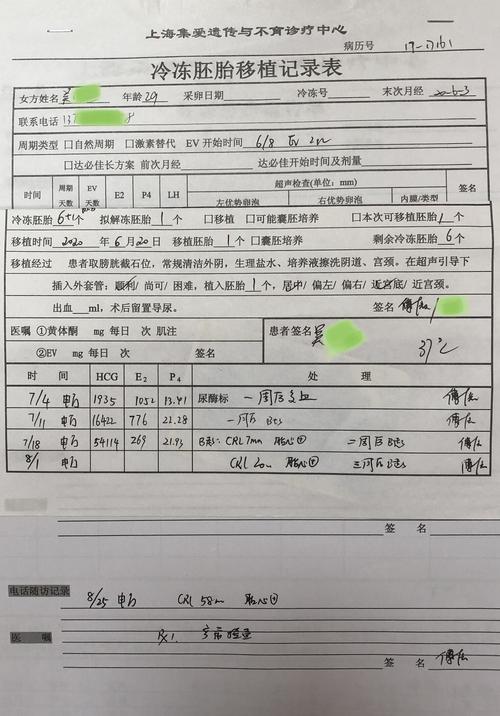 上海集爱遗传与不育诊疗中心
病历号
冷冻胚胎移植记录表
女方姓名 年龄29 采卵日期 冷冻号 末次月经
联系电话 137 8
周期类型 □自然周期 □激素替代 EV开始时间 6/8 EV
□达必佳长方案 前次月经 达必佳开始时间及剂量
时间 周期天数 EV天数 E2 P4 LH 超声检查(单位：mm) 签名
左优势卵泡 右优势卵泡 内膜/类型
冷冻胚胎 6+1个 拟解冻胚胎 1 个 □移植 □可能囊胚培养 □本次可移植胚胎 1 个
移植时间 2020 年 6 月 20 日 移植胚胎 1 个 □囊胚培养 剩余冷冻胚胎 6 个
移植经过 患者取膀胱截石位，常规清洁外阴，生理盐水、培养液擦洗阴道、宫颈。在超声引导下
插入外套管：顺利/ 尚可/ 困难，植入胚胎 1 个，居中/ 偏左/ 偏右/ 近宫底/ 近宫颈。
出血 ml，术后留置导尿。 签名
医嘱 ①黄体酮 mg 每日 次 肌注 患者签名
②EV mg 每日 次 签名 37℃
时 间 HCG E2 P4 处 理
7/4 电话 1935 1052 13.41 尿酶标 一周后
7/11 电话 16422 776 21.28 一周后 B超
7/18 电话 54114 269 21.93 B超: CRL 7mm 胎心⊕ 二周后B超
8/1 电话 CRL 胎心⊕ 三周后B超
签 名
电话随访记录 8/25 电话 CRL 58mm 胎心⊕
医 嘱
签 名